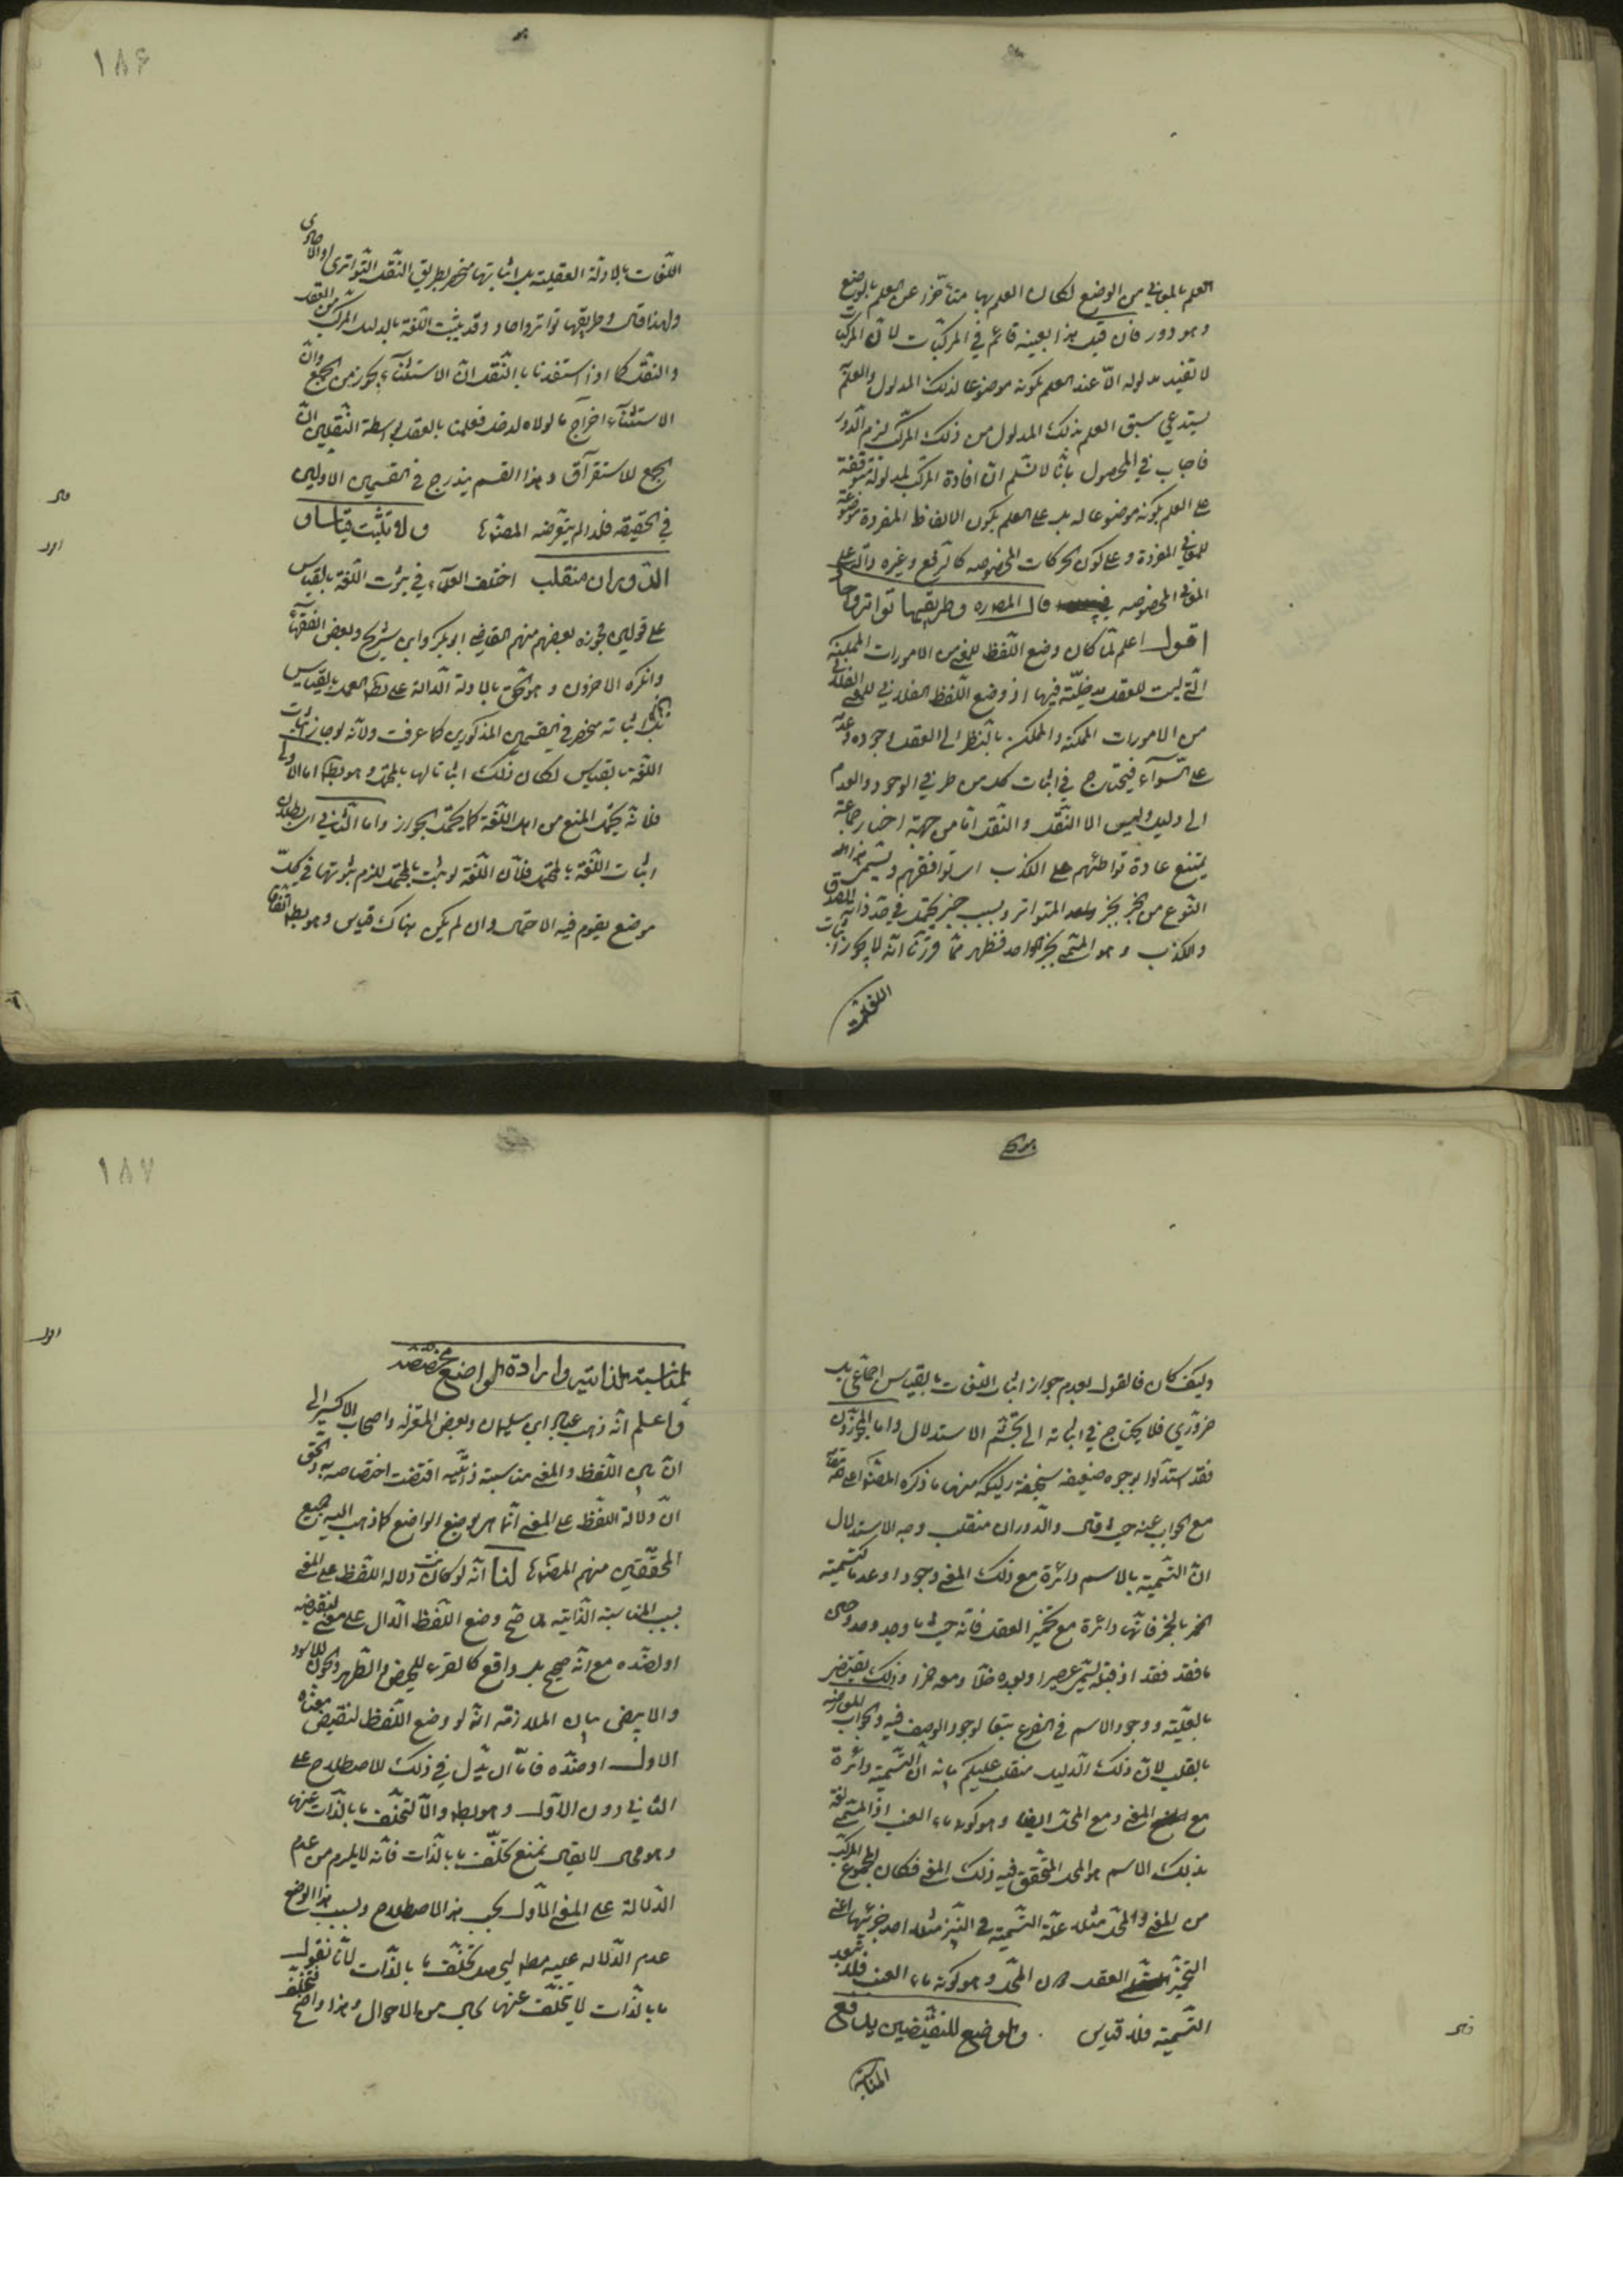 ١٨۶
العلم بالمعاني من الوضع لكان العلم بها متأخرا عن العلم بالوضع
وهو دور فان قيل هذا بعينه قائم في المركبات لان المركب
لا تفيد مدلوله الّا عند العلم بكونه موضوعا لذلك المدلول والعلم به
يستدعي سبق العلم بذلك المدلول من ذلك المركب لزم الدور
فاجاب في المحصول بأنّا لا نسلم ان افادة المركب لمدلوله متوقفة
على العلم بكونه موضوعا له بل على العلم بكون الالفاظ المفردة موضوعة
للمعاني المفردة وعلى كون الحركات المخصوصه كالرفع وغيره دالة على
المعاني المخصوصه قال المصره وطريقها تواتر وآحاد
اقول اعلم لمّا كان وضع اللفظ للمعنى من الامورات الممكنة
الّتي ليست للعقل مدخليّة فيها اذ وضع اللفظ الفلاني للمعنى الفلاني
من الامورات الممكنة والممكن بالنظر الى العقل وجوده وعدمه
على السّواء فيحتاج في اثبات كل من طرفي الوجود والعدم
الى دليل وليس الا النقل والنقل امّا من جهة اخبار جماعة
يمتنع عادة تواطئهم على الكذب اى توافقهم ويسمى هذا
النوع من الخبر بخبر المتواتر وبسبب خبر يحتمل في حدّ ذاته الصدق
والكذب وهو المسمى بخبر الواحد فظهر ممّا قررنا انّه لا يجوز اثبات
اللغات
اللّغات بالادلة العقلية بل اثباتها منحصر بطريق النّقل التواتري والاحادي
ولهذا قال وطريقها تواتر واحاد وقد يثبت اللغة بالدليل المركب من العقل
والنقل كما اذا استفدنا بالنّقل انّ الاستثناء يجوز من الجمع وانّ
الاستثناء اخراج ما لولاه لدخل فعلمنا بالعقل بواسطة النقلين انّ
الجمع للاستغراق وهذا القسم يندرج في القسمين الاولين
في الحقيقه فلذا لم يتعرضه المصنّف ولا تثبت قياسا و
قال
اقول
الدّوران منقلب اختلف العلماء في ثبوت اللغة بالقياس
على قولين فجوزه بعضهم منهم القاضى ابو بكر وابن سريج وبعض الفقهاء
وانكره الاخرون وهو الحق بالادلة الدالة على بطلان العمل بالقياس
بل اثباته منحصر في القسمين المذكورين كما عرفت ولانّه لو جاز اثبات
اللغة بالقياس لكان ذلك اثباتا لها بالمحتمل وهو بط اما الاولى
فلانّه يحتمل المنع من اهل اللّغة كما يحتمل الجواز واما الثاني اى بطلان
اثبات اللغة بالمحتمل فلأن اللّغة لو ثبت بالمحتمل للزم ثبوتها في كلّ
موضع يقوم فيه الاحتمال وان لم يكن هناك قياس وهو بط اتفاقا
١٨٧
وكيف كان فالقول بعدم جواز اثبات اللغات بالقياس اجماعي بل
ضروري فلا يحتاج في اثباته الى تجشم الاستدلال واما المجوزون
فقد استدلوا بوجوه ضعيفه سخيفة ركيكه منها ما ذكره المصنّف اعلى الله مقامه
مع الجواب عنه حيث قال والدوران منقلب وجه الاستدلال
انّ التّسمية بالاسم دائرة مع ذلك المعنى وجودا وعدما كتسمية
الخمر بالخمر فانّها دائرة مع تخمير العقل فانّه حيث ما وجد وجد وحيث
ما فقد فقد اذ قبله يسمى عصيرا وبعده خلّا ومعه خمرا وذلك يقتضى
بالعلّية ووجود الاسم في الفرع تبعا لوجود الوصف فيه والجواب المعارضة
بالقلب لانّ ذلك الدليل منقلب عليكم بانه انّ التّسمية دائرة
مع المعنى ومع المحل ايضا وهو كونه ماء العنب اذ المسمى لغة
بذلك الاسم هو المحل المتحقق فيه ذلك المعنى فكان المجموع المركب
من المعنى والمحل مثلا علّة التّسمية في النبيذ مثلا احد جزئيها اعني
التخمير العقل دون المحل وهو كونه ماء العنب فلا تتعدى
التّسمية فلا قياس . والوضع للنقيضين يدفع
قال
المناسبة
المناسبة الذاتية وارادة الواضع مخصّصة
اقول
واعلم انّه ذهب عباد ابن سليمان وبعض المعتزلة واصحاب الاكسير الى
انّ بين اللفظ والمعنى مناسبة ذاتيه اقتضت اختصاصه به والحق
انّ دلالة اللفظ على المعنى انّما هى بوضع الواضع كما ذهب اليه جميع
المحققين منهم المصنّف لنا انّه لو كانت دلاله اللفظ على المعنى
بسبب المناسبة الذاتية لما صحّ وضع اللفظ الدال على معنى لنقيضه
او لضدّه مع انّه صحيح بل واقع كالقرء للحيض والطهر والجون للاسود
والابيض بيان الملازمة انّه لو وضع اللفظ لنقيض معناه
الاول او ضدّه فامّا ان يدّل في ذلك الاصطلاح على
الثاني دون الاول وهو بط والّا لتخلّف ما بالذّات عنها
وهو محال لا يقال نمنع تخلّف ما بالذّات فانّه لا يلزم من عدم
الدّلالة على المعنى الاول بحسب هذا الاصطلاح وبسبب هذا الوضع
عدم الدّلاله عليه مطلقا ليحصل تخلّف ما بالذّات لأنّا نقول
ما بالذّات لا يتخلّف عنها بحال من الاحوال وهذا واضح فتخلّف